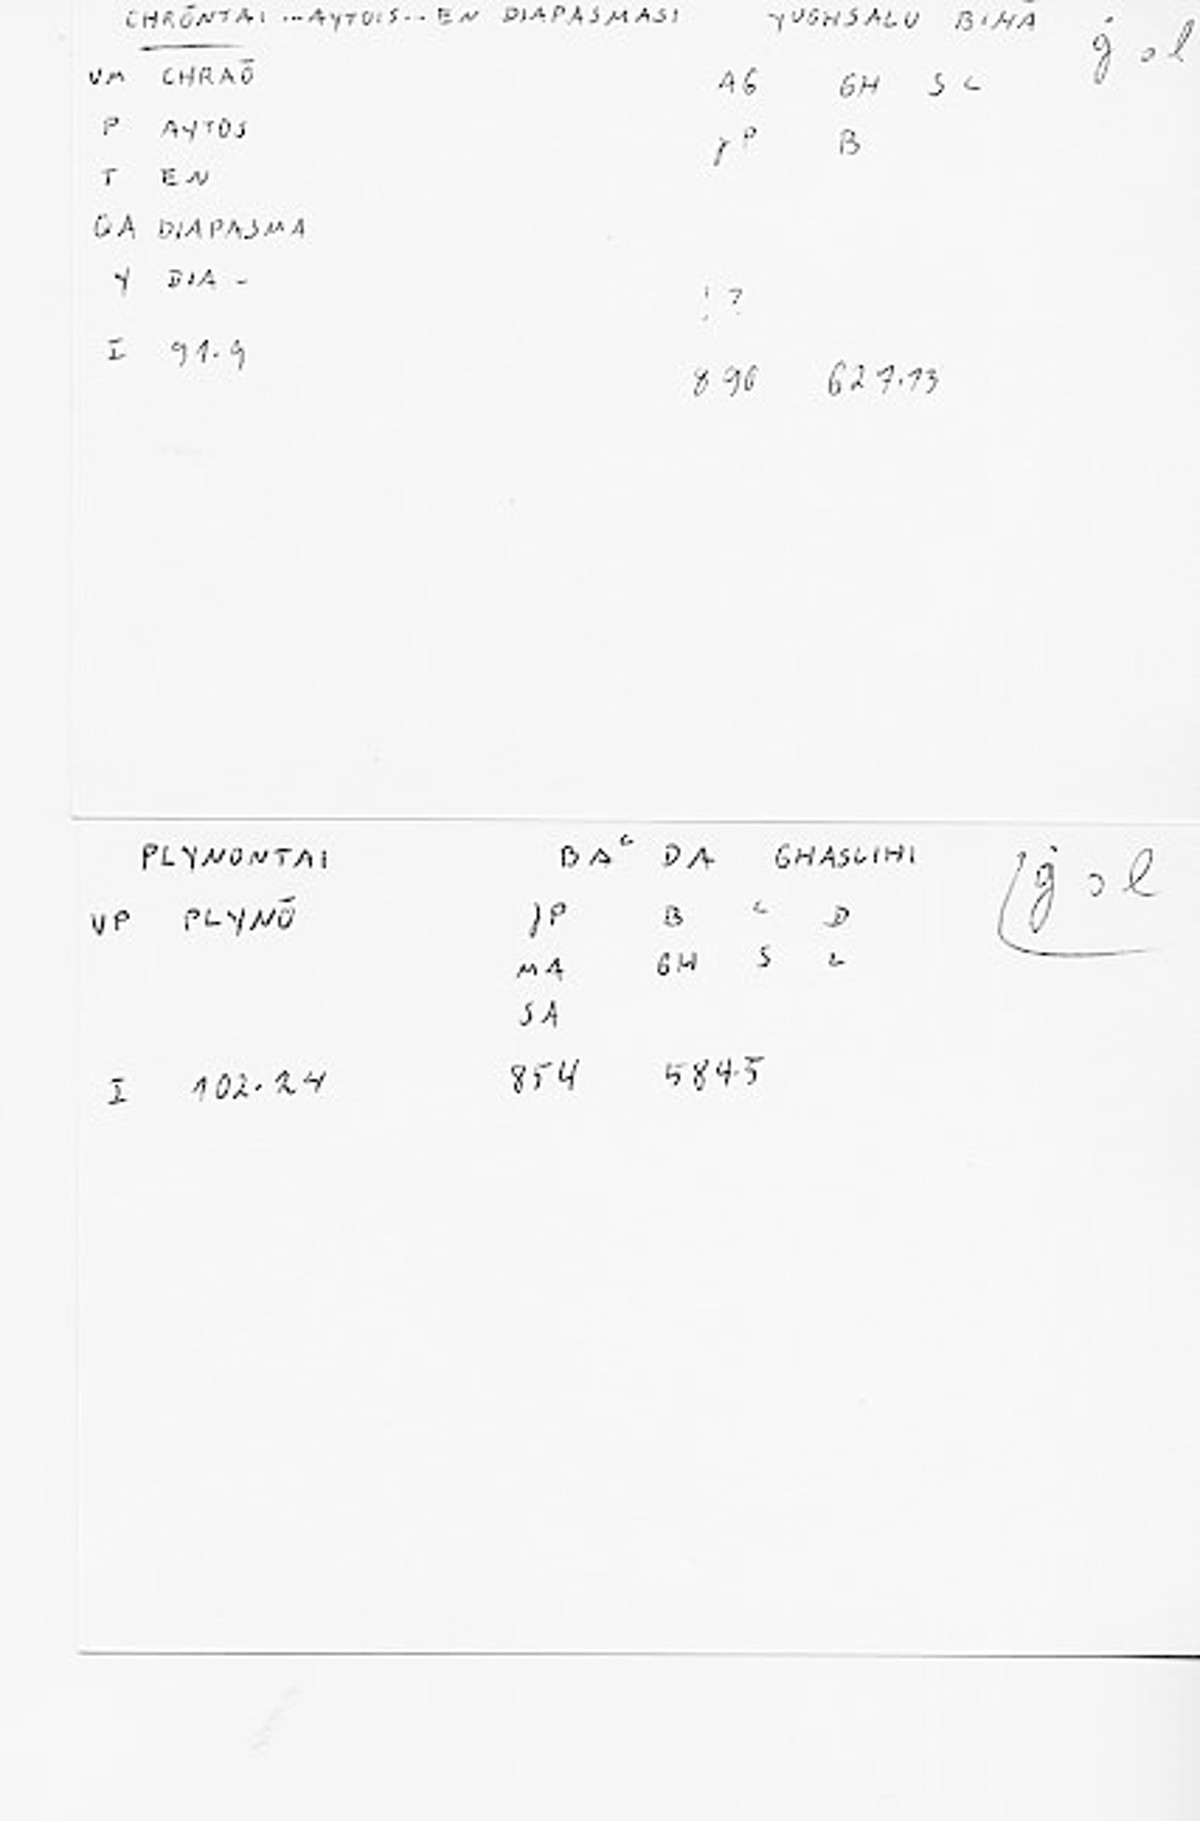 CHRŌNTAI ... AYTOIS .. EN DIAPASMASI YUGHSALU BIHĀ
VM CHRAŌ AG GH S L
P AYTOS γP B
T EN
GA DIAPASMA
Y DIA -
!?
I 91.9 896 627.13
PLYNONTAI BAᶜDA GHASLIHI
VP PLYNŌ γP B ᶜ D
MA GH S L
SA
I 102.24 854 584.5